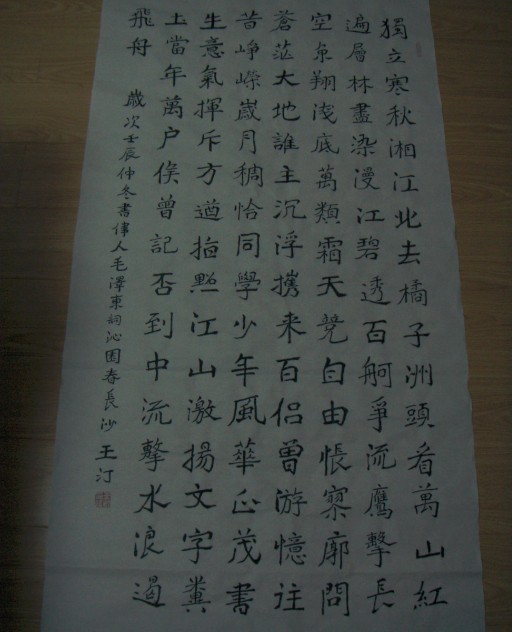 獨立寒秋湘江北去橘子洲頭看萬山紅
遍層林盡染漫江碧透百舸爭流鷹擊長
空魚翔淺底萬類霜天競自由悵寥廓問
蒼茫大地誰主沉浮携来百侣曾游憶往
昔崢嶸歲月稠恰同學少年風華正茂書
生意氣揮斥方遒指點江山激揚文字糞
土當年萬户侯曾記否到中流擊水浪遏
飛舟
歲次壬辰仲冬書偉人毛澤東詞沁園春長沙 王汀